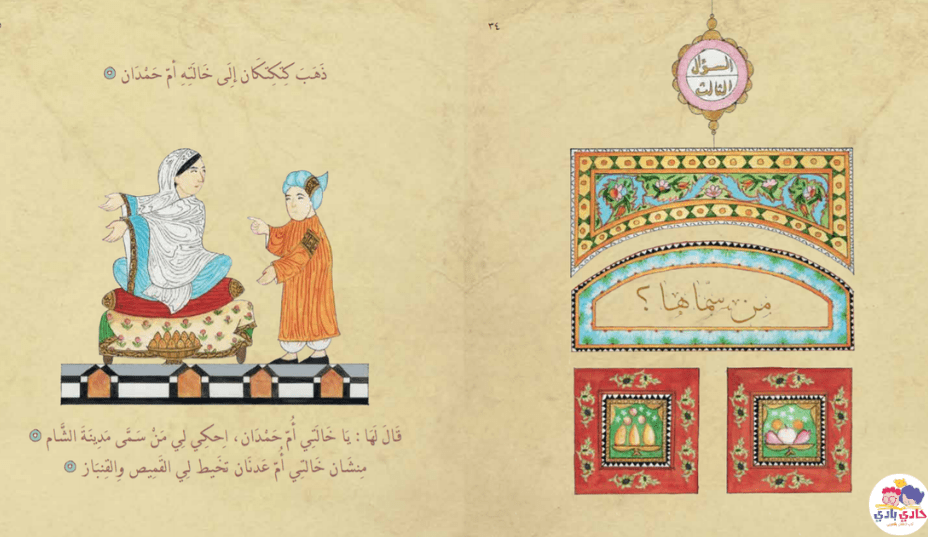 ٣٤
السؤال
الثالث
مِن سمّاها ؟
ذَهَبَ كِتكِتكَان إلَى خَالَتِهِ أمّ حَمْدَان
قَالَ لَهَا : يَا خَالَتِي أُمّ حَمْدَان، احكِي لِي مَنْ سَمَّى مَدِينَةَ الشَّام
مِنشَان خَالتِي أُمّ عَدنَان تخَيط لِي القَمِيص والقِنبَاز
حادي بادي